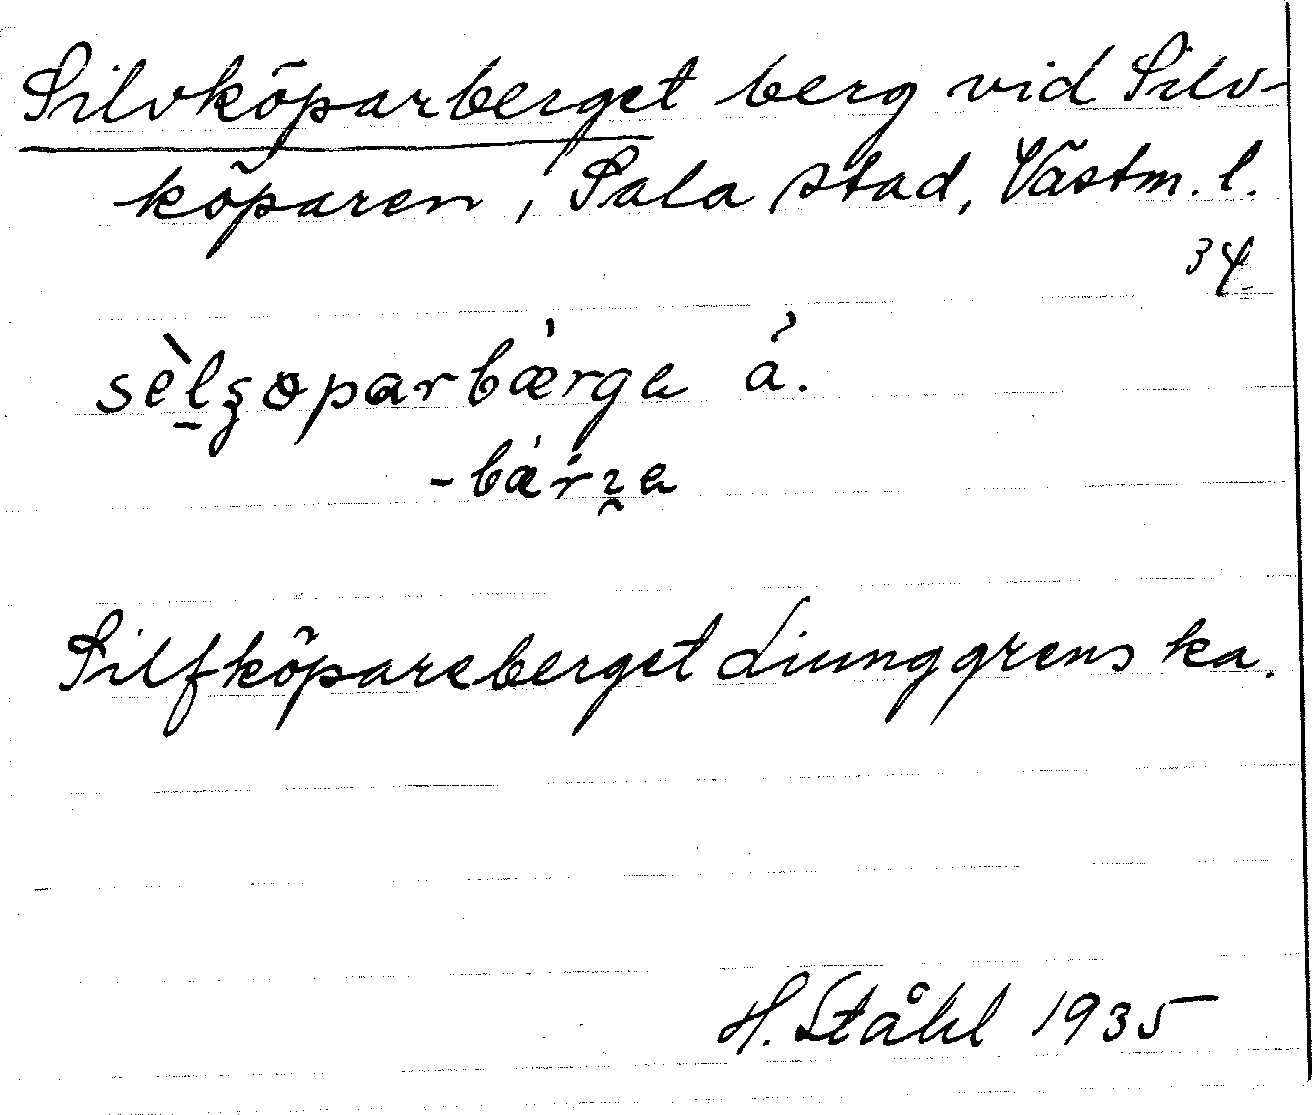 Silvköparberget berg vid Silv-
köparen, Sala stad, Västm. l.
34.
sèlʒoparbærga á.
-bærʒa
Silfköpareberget Liunggrens ka.
H. Ståhl 1935